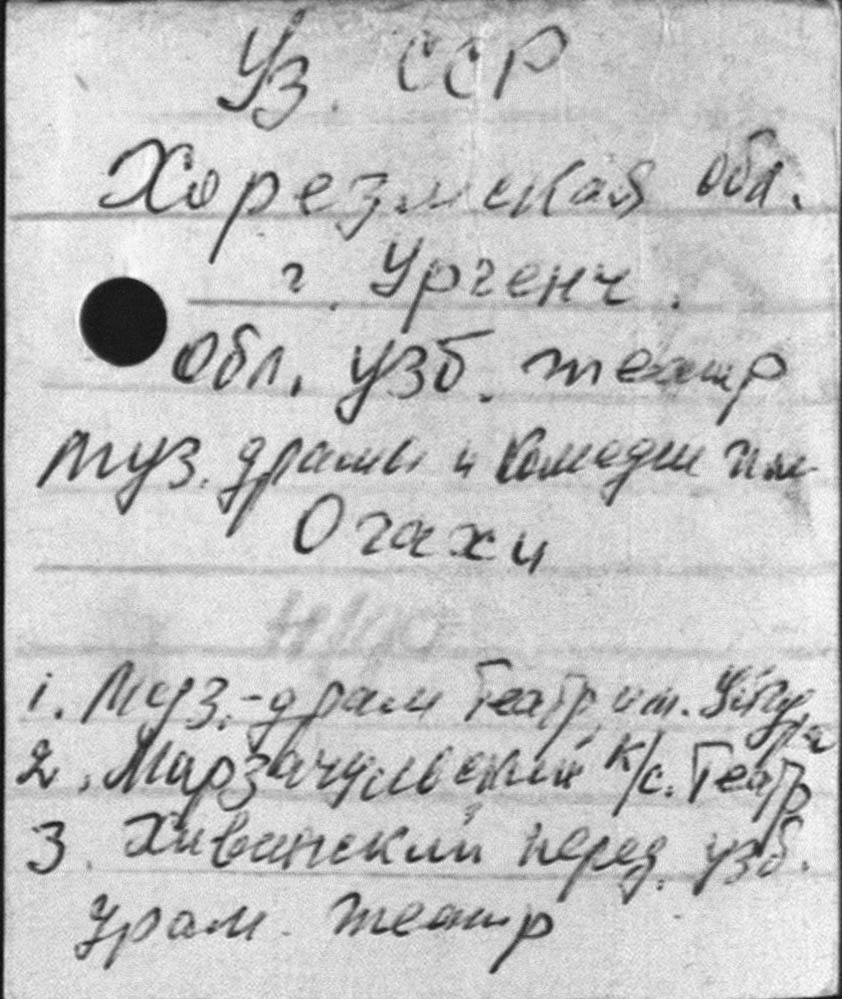 Уз. ССР
Хорезмская обл.
г. Ургенч.
Обл. узб. театр
муз. драмы и комедии им
Огахи
1. Муз.-драм Театр им.
2. Мирзачульский к/с. Театр
3. Хивинский перед. узб.
драм. театр